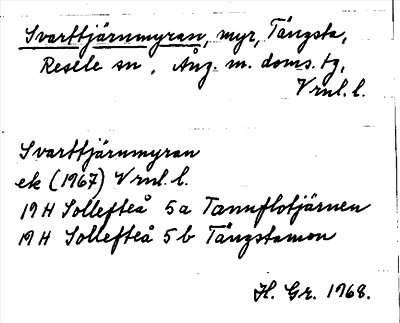 Svarttjärnmyran, myr, Tängsta,
Resele sn, Ång. m. doms. tg,
Vrnl. l.
Svarttjärnmyran
ek (1967) Vrnl. l.
19H Sollefteå 5a Tannflotjärnen
19H Sollefteå 5b Tängstamon
H. Gr. 1968.